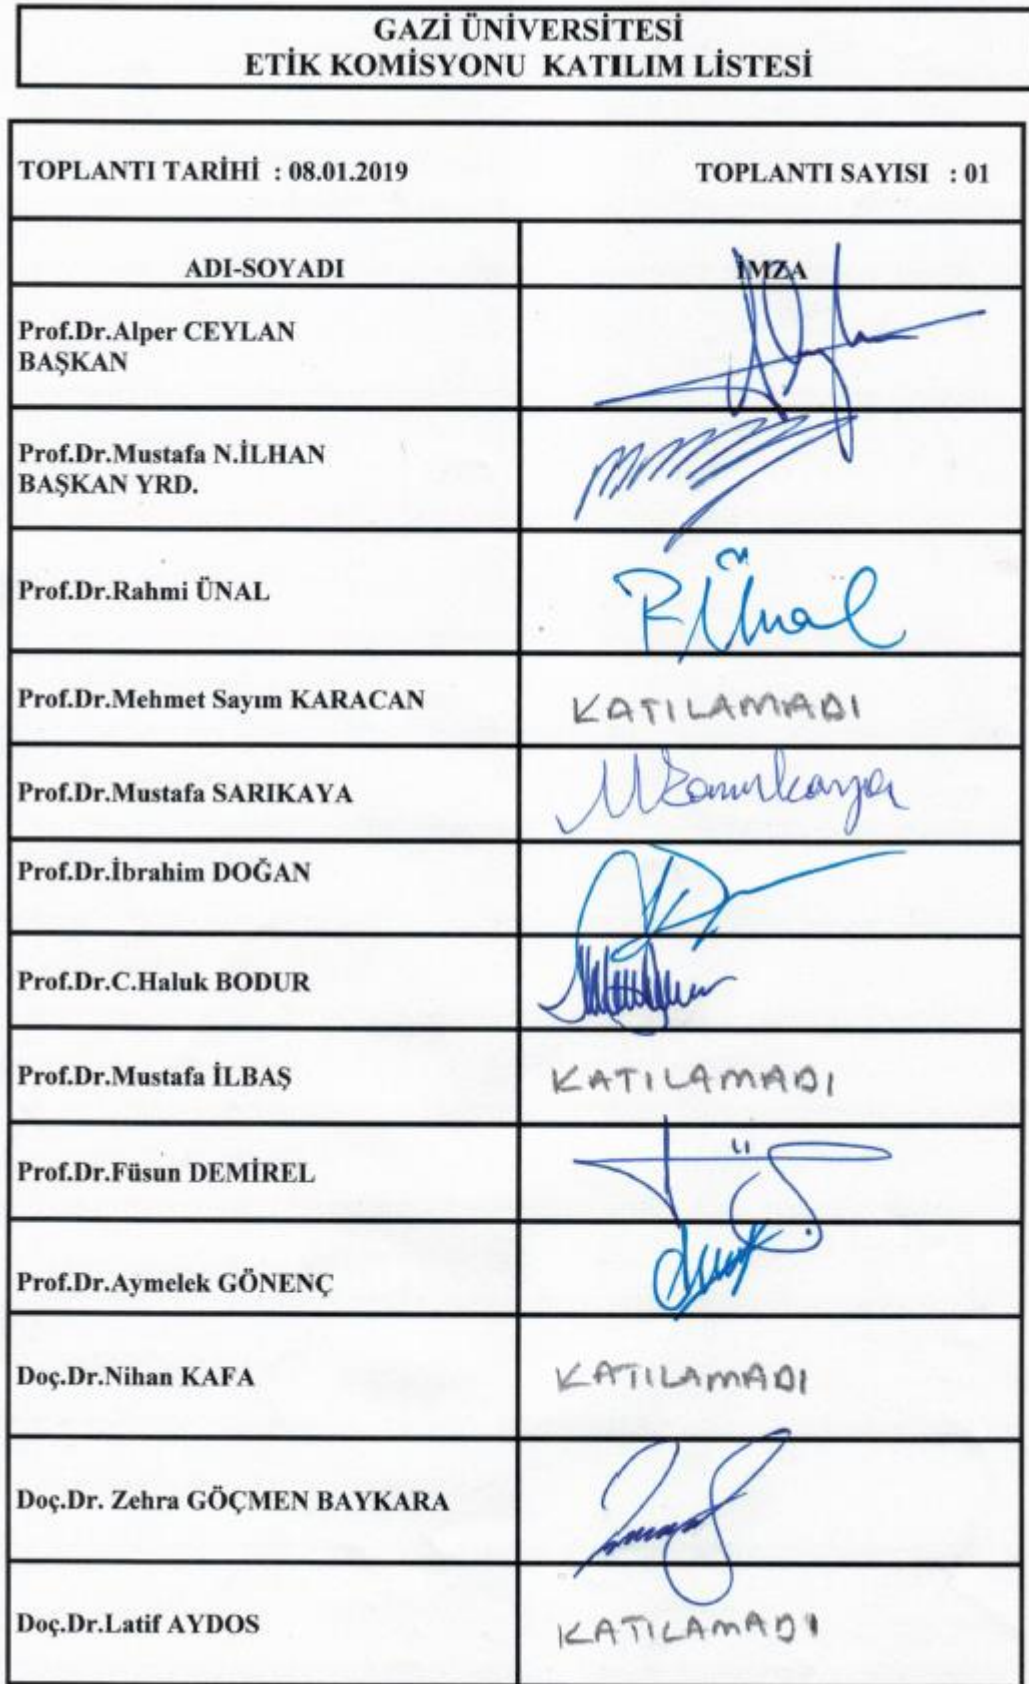 GAZİ ÜNİVERSİTESİ
ETİK KOMİSYONU KATILIM LİSTESİ
TOPLANTI TARİHİ : 08.01.2019 TOPLANTI SAYISI : 01
ADI-SOYADI İMZA
Prof.Dr.Alper CEYLAN
BAŞKAN
Prof.Dr.Mustafa N.İLHAN
BAŞKAN YRD.
Prof.Dr.Rahmi ÜNAL R.Ünal
Prof.Dr.Mehmet Sayım KARACAN KATILAMADI
Prof.Dr.Mustafa SARIKAYA MSarıkaya
Prof.Dr.İbrahim DOĞAN
Prof.Dr.C.Haluk BODUR
Prof.Dr.Mustafa İLBAŞ KATILAMADI
Prof.Dr.Füsun DEMİREL
Prof.Dr.Aymelek GÖNENÇ
Doç.Dr.Nihan KAFA KATILAMADI
Doç.Dr. Zehra GÖÇMEN BAYKARA
Doç.Dr.Latif AYDOS KATILAMADI